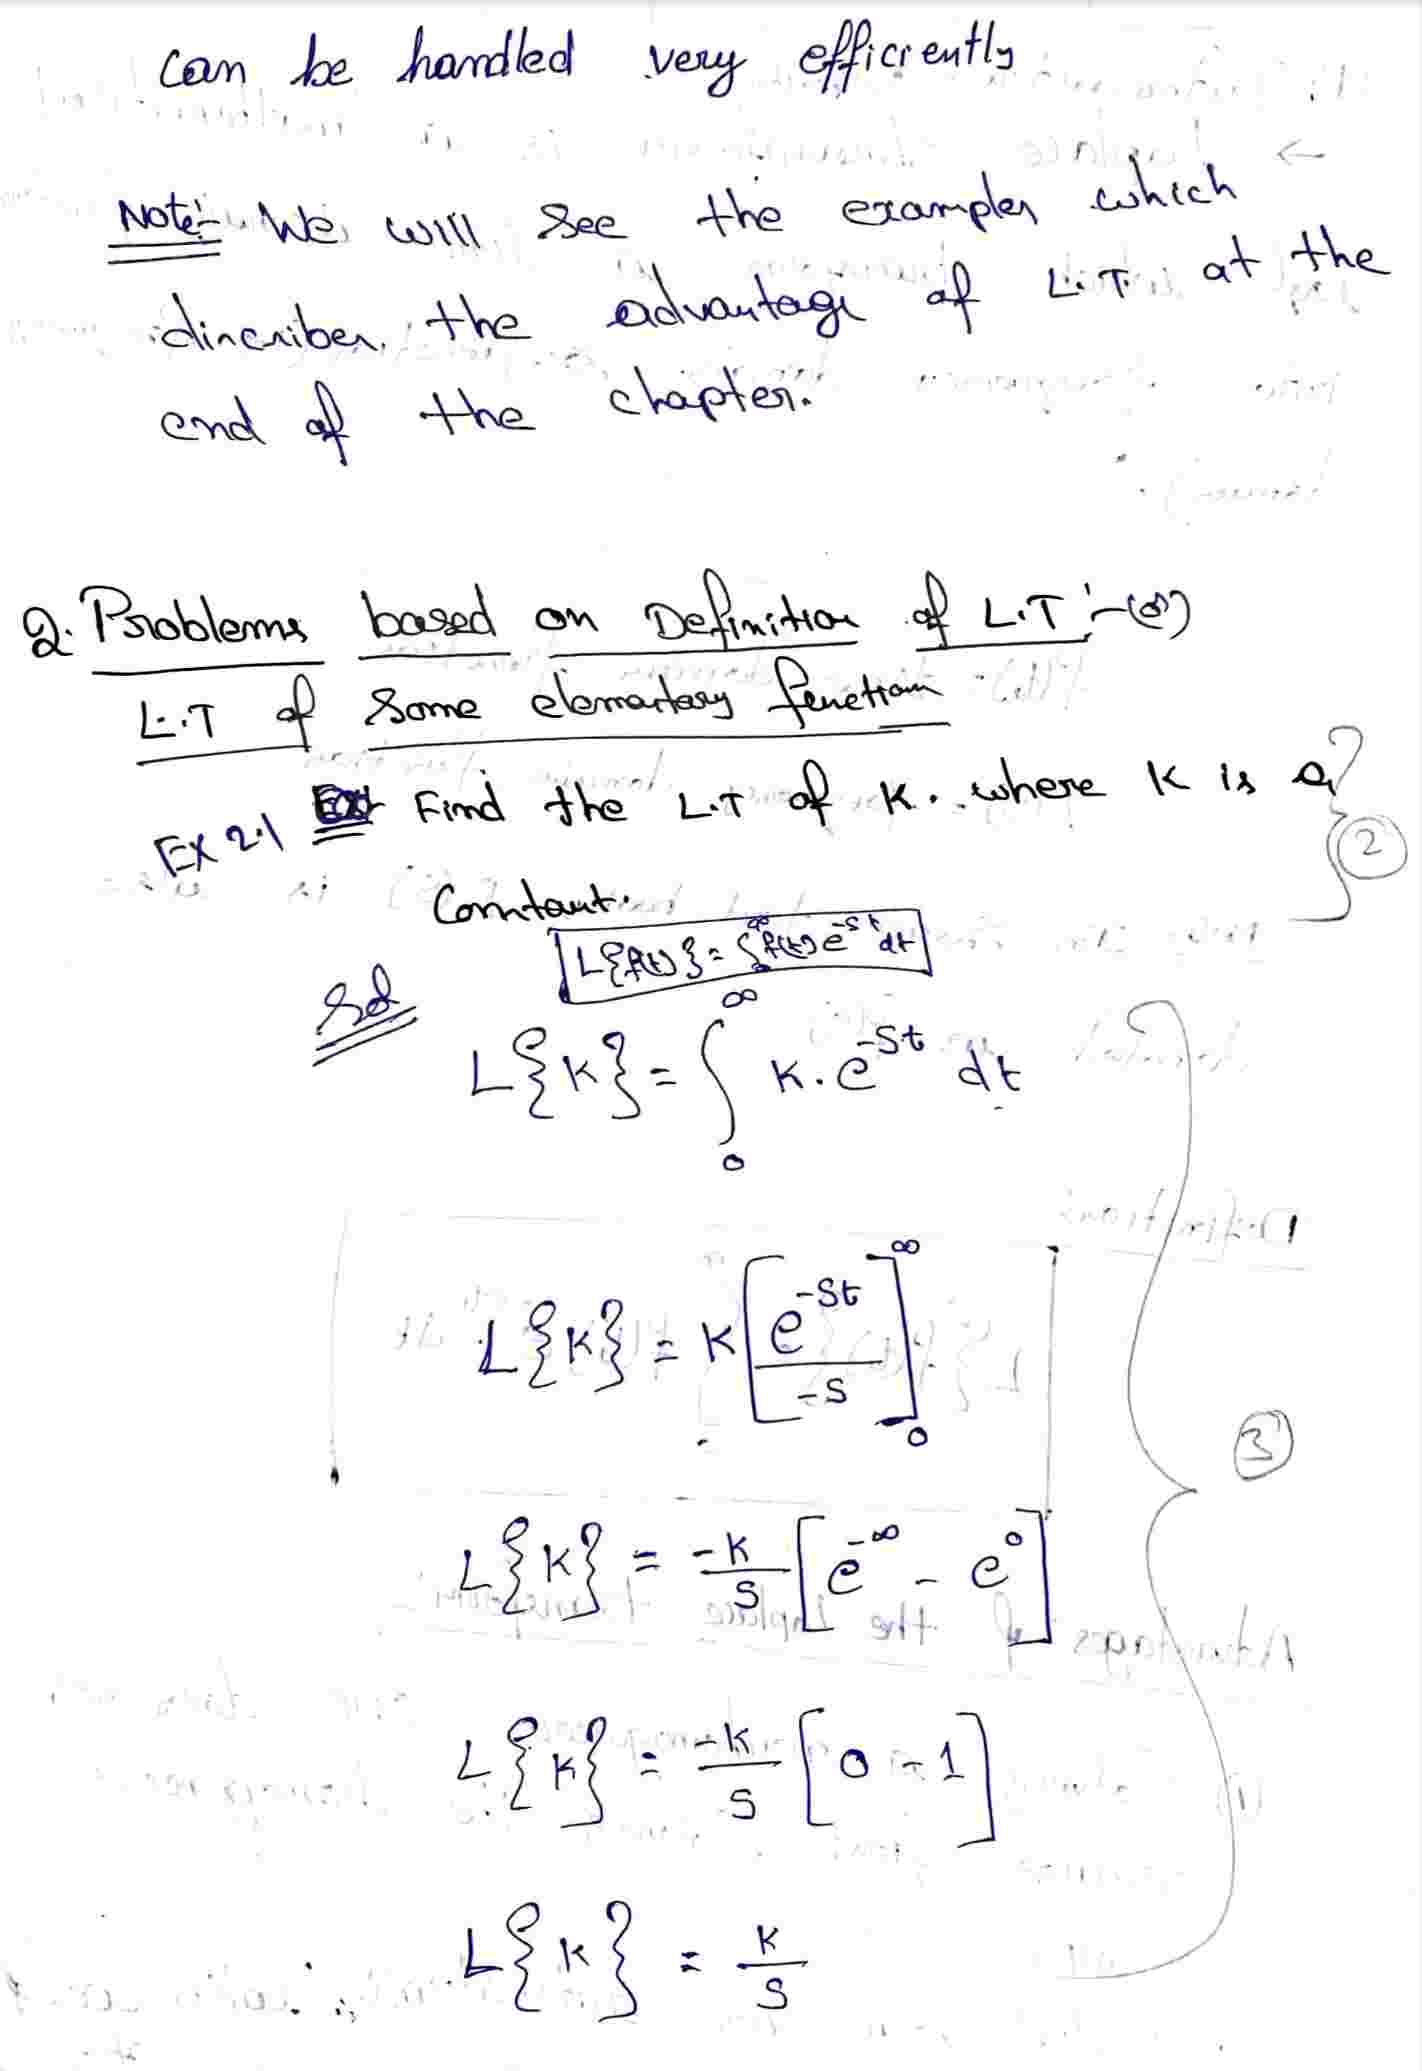 can be handled very efficiently
Note:- We will see the examples which
discribes the advantage of L.T. at the
end of the chapter.
2. Problems based on Definition of L.T :- (or)
L.T of some elementary function
EX 2.1 Find the L.T of K. where K is a
Constant.
2
L{f(t)} = ∫₀^∞ f(t) e^{-st} dt
Sol
L{K} = ∫₀^∞ K. e^{-st} dt
L{K} = K [e^{-st}/-s]₀^∞
3
L{K} = -K/s [e^{-∞} - e^{0}]
L{K} = -K/s [0 - 1]
L{K} = K/s